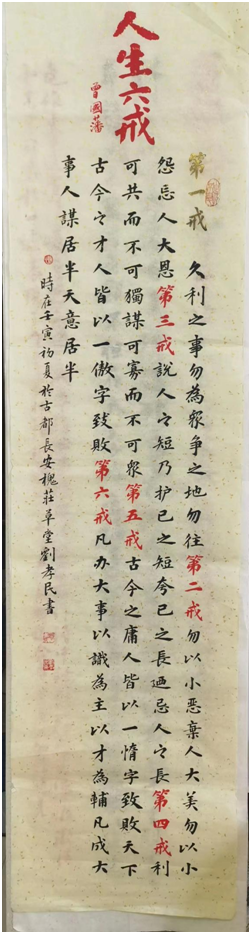 人生六戒
曾國藩
第一戒 久利之事勿為眾爭之地勿往第二戒勿以小惡棄人大美勿以小
怨忘人大恩第三戒說人之短乃护己之短夸己之長迺忌人之長第四戒利
可共而不可獨謀可寡而不可眾第五戒古今之庸人皆以一惰字致敗天下
古今之才人皆以一傲字致敗第六戒凡办大事以識為主以才為輔凡成大
事人謀居半天意居半
時在壬寅初夏於古都長安槐莊草堂劉孝民書